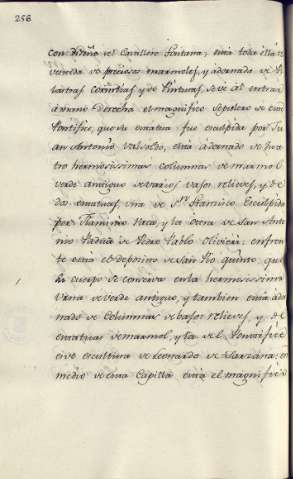 258
con diseño del Cavallero Fontana; esta toda ella re
vestida de preciosos marmoles, y adornada de Pi
lastras corintias, y de Pinturas, se vé al entrar
à mano derecha el magnifico Sepulcro de este
Pontifice, que su estatua fue esculpida por Ju
an Antonio Valsoldo, esta adornado de qua
tro hermosissimas columnas de marmol
verde antiguo de varios vasos relieves, y de
dos estatuas, una de Sn. Francisco Esculpida
por Flaminio Vaca, y la otra de San Anto
nio Padua de Pedro Pablo Olivieri: enfren
te esta el deposito de San Pio quinto, que
su cuerpo se conserva en la hermosissima
Urna de verde antiguo, y tambien esta ador
nado de columnas de baxos relieves, y de
estatuas de marmol, y la del Pontifice
es escultura de Leonardo de Sarzana: en
medio de esta Capilla esta el magnifico